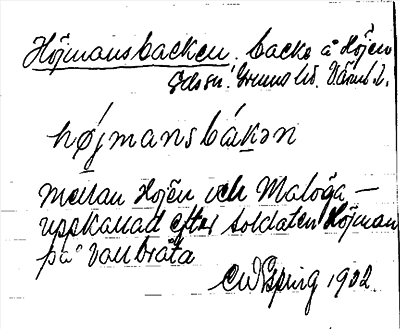 Höjmansbacken, backe å Höjen
Gräsm: Grums hd. Värml.
højmansbakən
mellan Höjen och Malöga —
uppkallad efter soldaten Höjman
på Vallbråta
1902